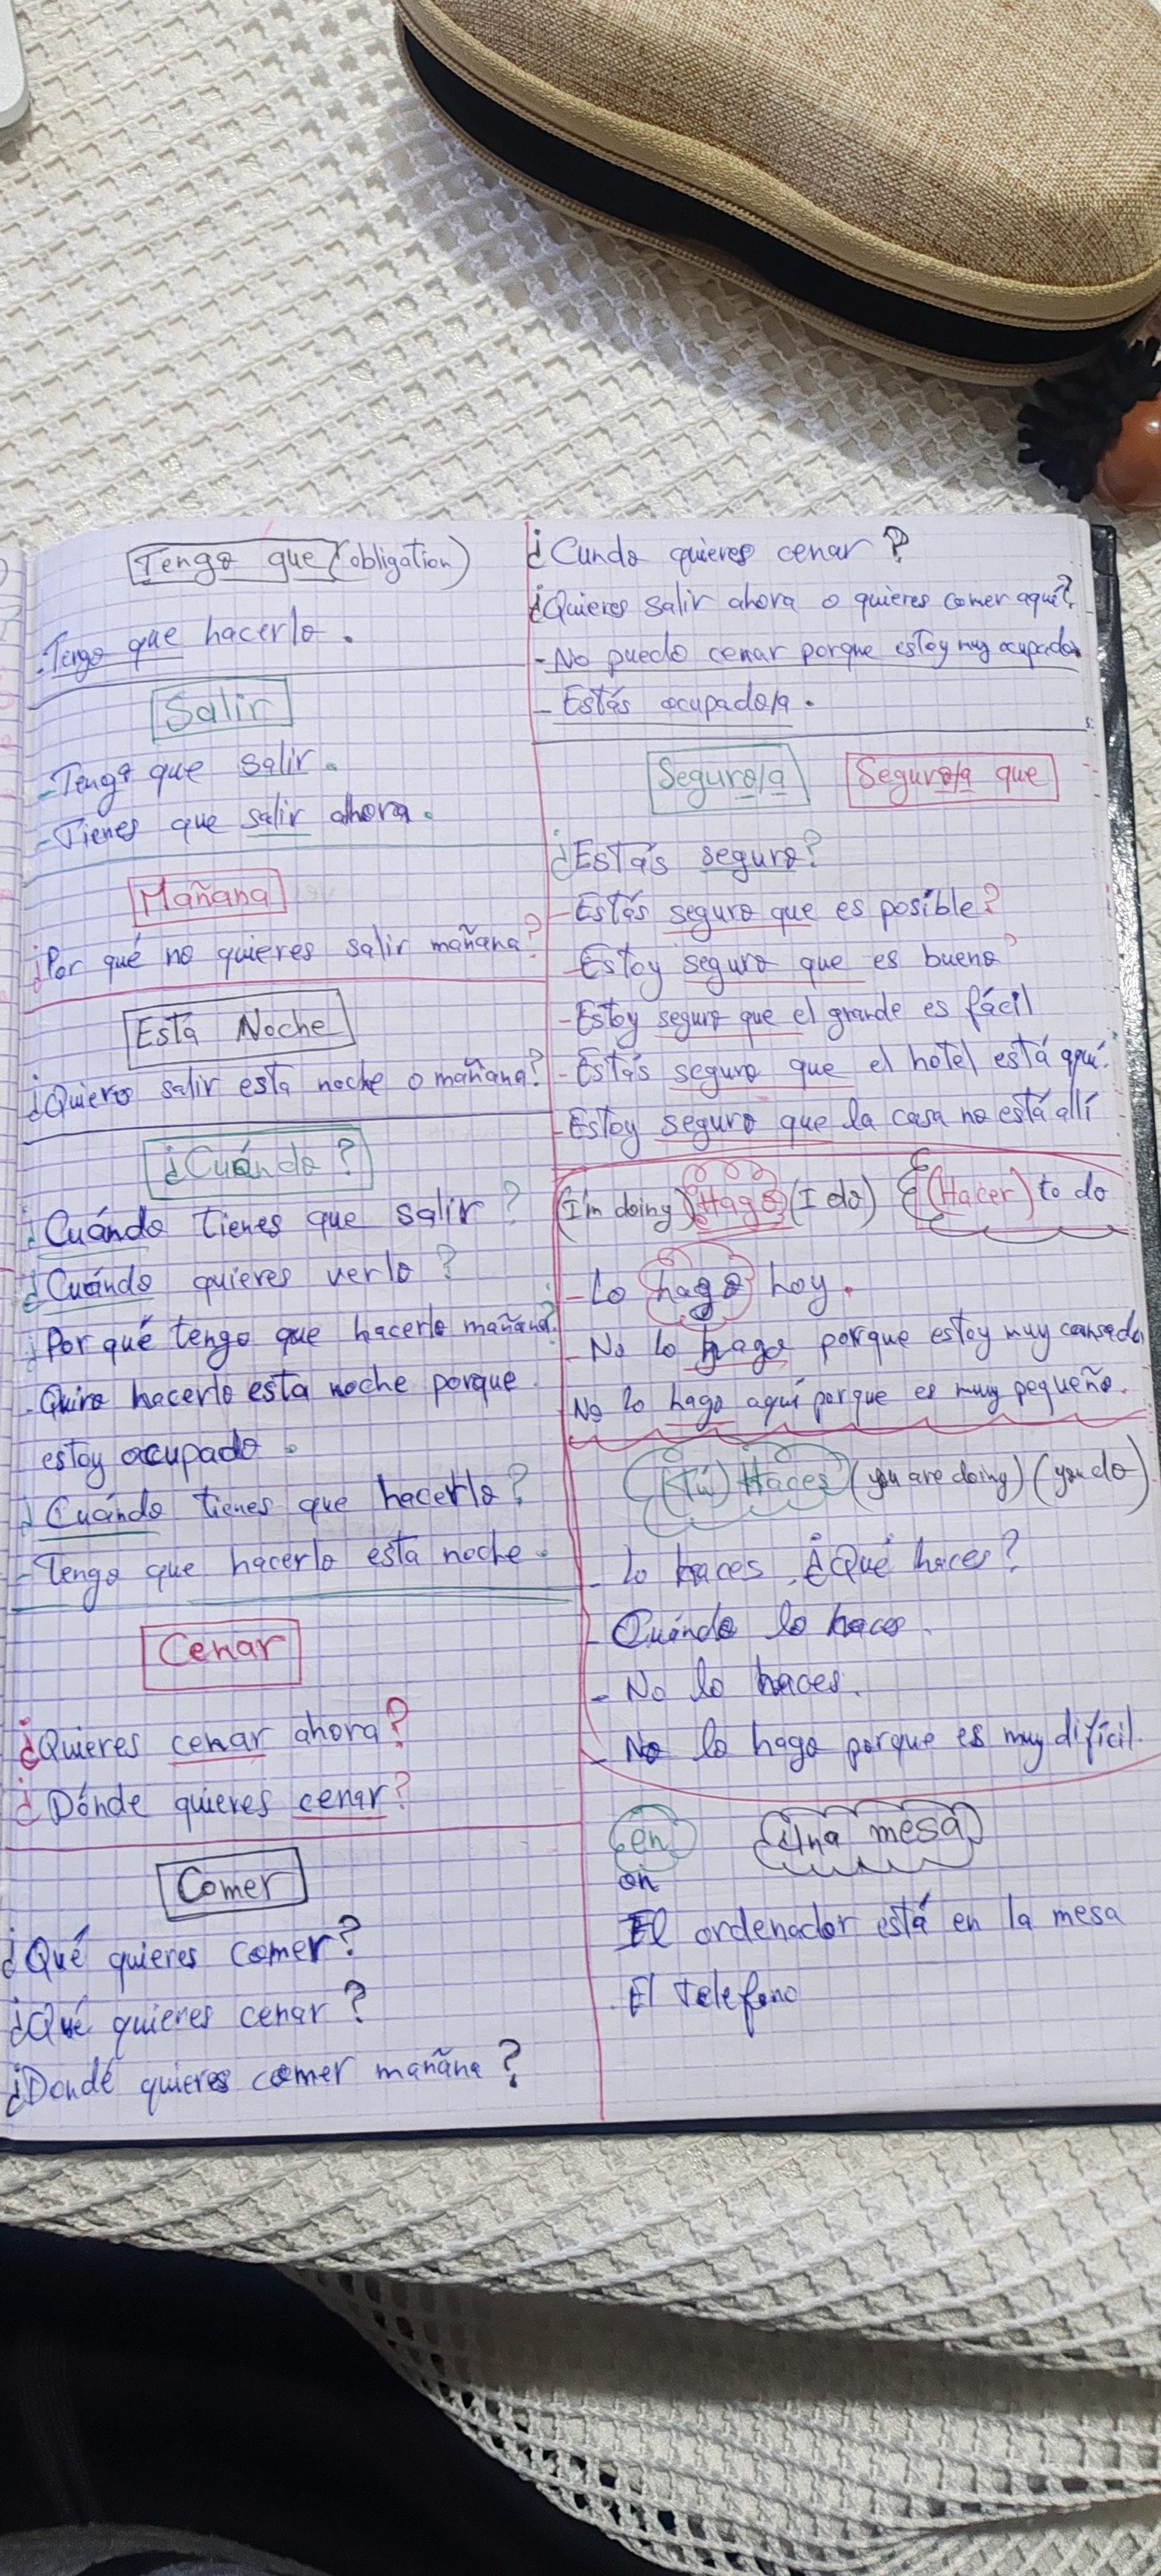 Tengo que (obligation)
- Tengo que hacerlo.
Salir
- Tengo que salir.
- Tienes que salir ahora.
Mañana
¿Por qué no quieres salir mañana?
Esta Noche
¿Quieres salir esta noche o mañana?
¿Cuándo?
¿Cuándo tienes que salir?
¿Cuándo quieres verlo?
¿Por qué tengo que hacerlo mañana?
- Quiro hacerlo esta noche porque
estoy ocupado.
¿Cuándo tienes que hacerlo?
- Tengo que hacerlo esta noche.
Cenar
¿Quieres cenar ahora?
¿Dónde quieres cenar?
Comer
¿Qué quieres comer?
¿Qué quieres cenar?
¿Dondé quieres comer mañana?
¿Cundo quieres cenar?
¿Quieres salir ahora o quieres comer aquí?
- No puedo cenar porque estoy muy ocupado.
- Estás ocupado/a.
Seguro/a Seguro/a que
¿Estás seguro?
- Estás seguro que es posible?
- Estoy seguro que es bueno
- Estoy seguro que el grande es fácil
- Estás seguro que el hotel está aquí.
- Estoy seguro que la casa no está allí
(I'm doing) Hago (I do) (Hacer) to do
- Lo hago hoy.
- No lo hago porque estoy muy cansado
No lo hago aquí porque es muy pequeño.
(Tú) Haces (you are doing) (you do)
- lo haces. ¿Qué haces?
- Cuándo lo haces.
- No lo haces.
- No lo hago porque es muy difícil.
en una mesa
on
El ordenador está en la mesa
El telefono